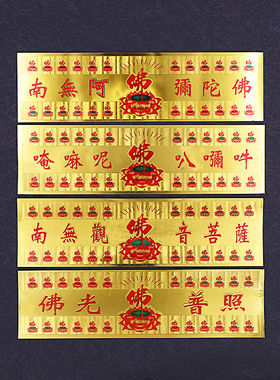 南無阿 佛 彌陀佛
唵嘛呢 佛 八彌吽
南無觀 佛 音菩薩
佛光 佛 普照